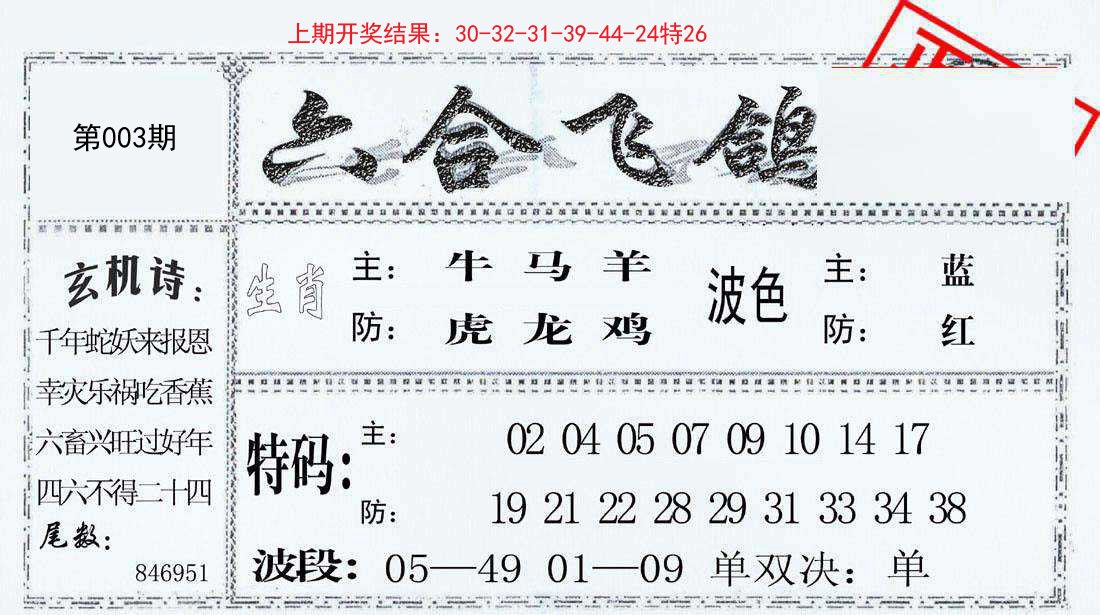 上期开奖结果：30-32-31-39-44-24特26
第003期
六合飞鸽
玄机诗：
千年蛇妖来报恩
幸灾乐祸吃香蕉
六畜兴旺过好年
四六不得二十四
尾数：
846951
生肖
主：牛马羊
防：虎龙鸡
波色
主：蓝
防：红
特码：
主：02 04 05 07 09 10 14 17
防：19 21 22 28 29 31 33 34 38
波段：05—49 01—09 单双决：单